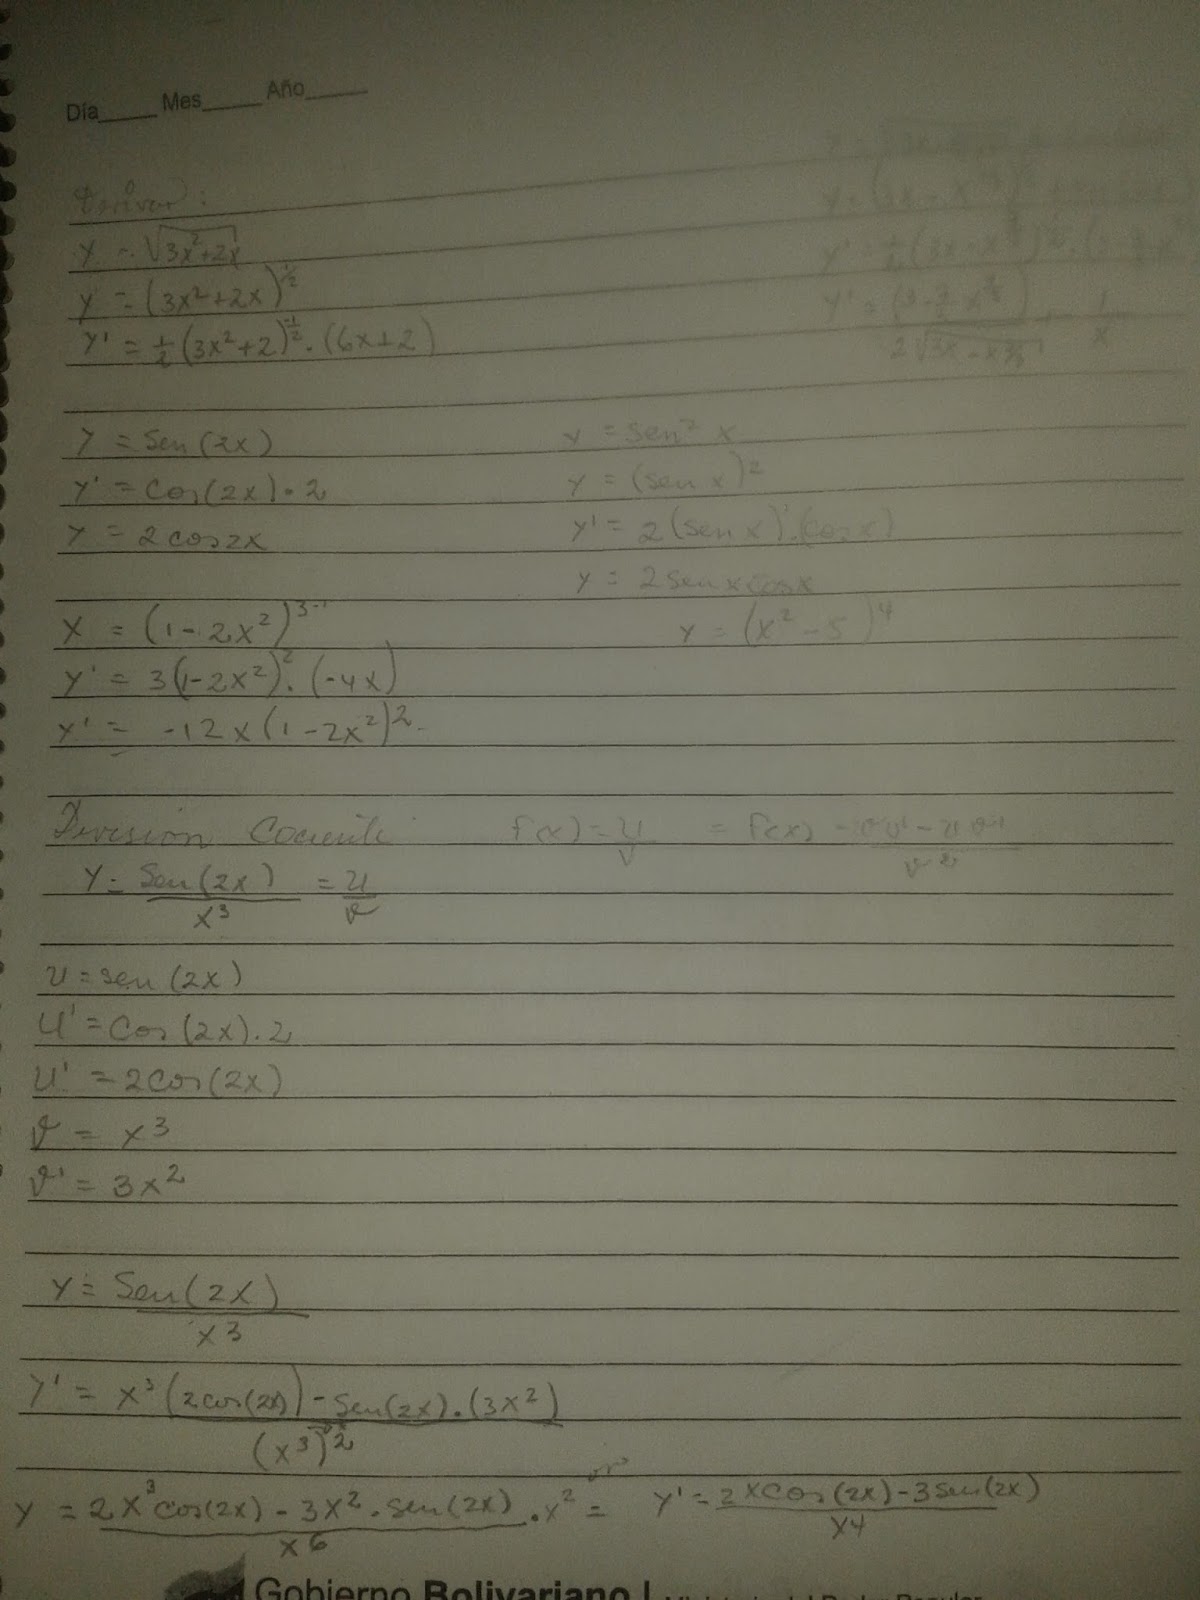 Día____ Mes____ Año____
Derivar:
y = √3x²+2x
y = (3x²+2x)^½
y' = ½ (3x²+2)^-½ . (6x+2)
y = Sen (2x)
y' = Cos (2x) . 2
y = 2 cos 2x
y = sen² x
y = (sen x)²
y' = 2 (sen x)' . (cos x)
y = 2 sen x cos x
y = (x² - 5)⁴
x = (1 - 2x²)³⁻¹
y' = 3(1-2x²)² . (-4x)
y' = -12x (1-2x²)²
División Cociente f(x) = u/v = f(x) = vu' - uv'/v²
y = Sen (2x)/x³ = u/v
u = sen (2x)
u' = Cos (2x) . 2
u' = 2 cos (2x)
v = x³
v' = 3x²
y = Sen (2x)/x³
y' = x³ (2 cos(2x)) - sen(2x) . (3x²)/(x³)²
y = 2x³ cos(2x) - 3x² . sen (2x)/x⁶ . x² = y' = 2x cos (2x) - 3 sen (2x)/x4
Gobierno Bolivariano